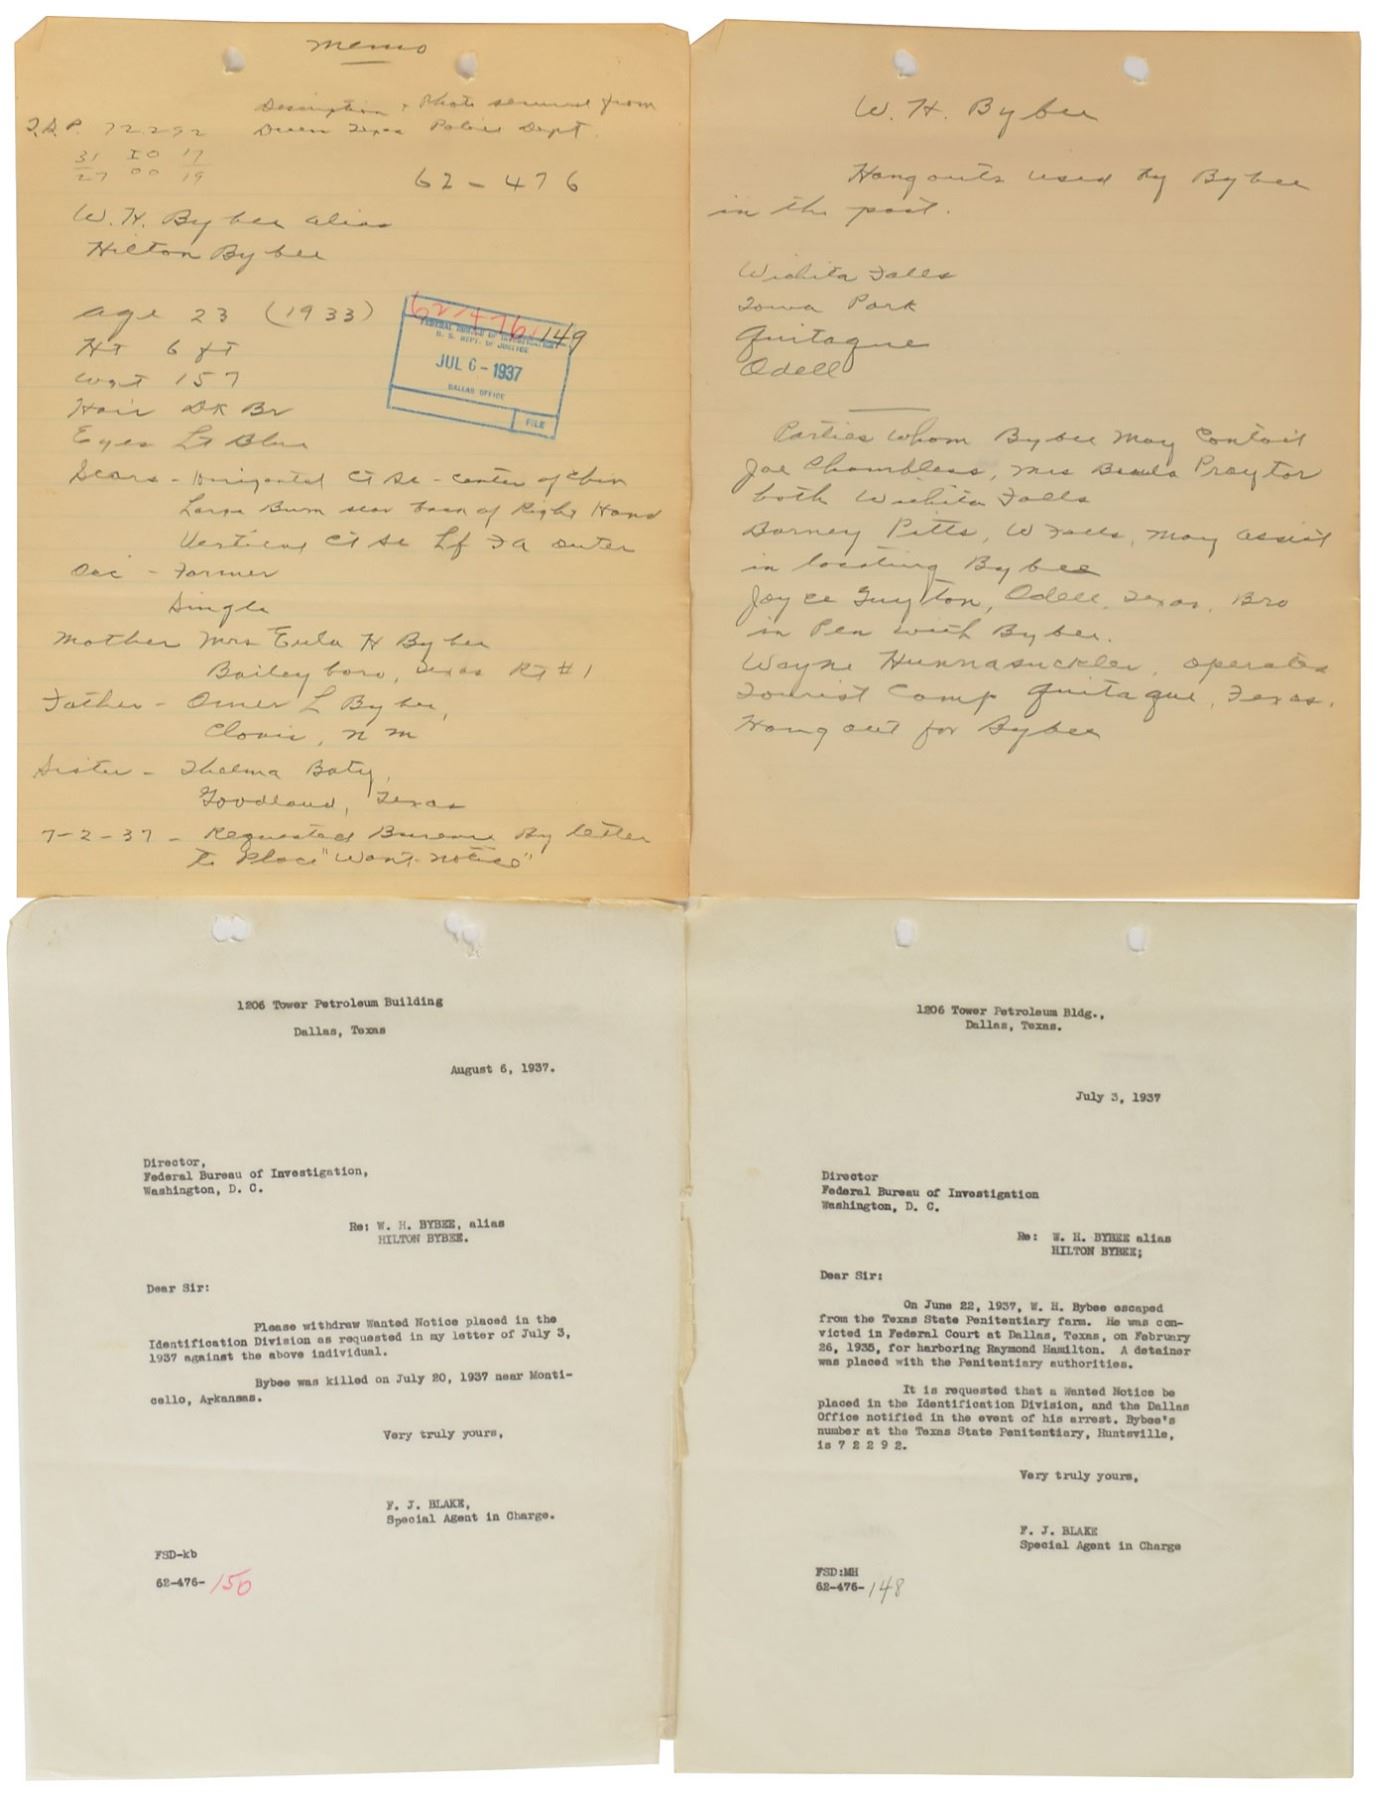 Memo
Description & Photo secured from
Texas Police Dept.
72292
31 IO 17
27 00 19
62-476
W. H. Bybee alias
Hilton Bybee
age 23 (1933)
Ht 6 ft
Wgt 157
Hair Dk Br
Eyes Lt Blue
Scars - Horizontal Ct Sc - center of chin
Large Burn scar back of Right Hand
Vertical Ct Sc Lf FA outer
Occ - Farmer
Single
Mother Mrs Eula H Bybee
Baileyboro, Texas Rt #1
Father - Omer L Bybee,
Clovis, N M
Sister - Thelma Baty,
Goodland, Texas
7-2-37 - Requested Bureau By letter
to Place "Want-Notice"
62-476-149
FEDERAL BUREAU OF INVESTIGATION
U. S. DEPT. OF JUSTICE
JUL 6 - 1937
DALLAS OFFICE
FILE
W. H. Bybee
Hangouts used by Bybee
in the past.
Wichita Falls
Iowa Park
Quitaque
Odell
Parties Whom Bybee May Contact
Joe Chambless, Mrs Beula Praytor
both Wichita Falls
Barney Pitts, W Falls, May assist
in locating Bybee
Joyce Guyton, Odell, Texas, Bro
in Pen with Bybee.
Wayne Hunnasuckler, operates
Tourist Camp Quitaque, Texas.
Hang out for Bybee
1206 Tower Petroleum Building
Dallas, Texas
August 6, 1937.
Director,
Federal Bureau of Investigation,
Washington, D. C.
Re: W. H. BYBEE, alias
HILTON BYBEE.
Dear Sir:
Please withdraw Wanted Notice placed in the
Identification Division as requested in my letter of July 3,
1937 against the above individual.
Bybee was killed on July 20, 1937 near Monti-
cello, Arkansas.
Very truly yours,
F. J. BLAKE,
Special Agent in Charge.
FSD-kb
62-476-150
1206 Tower Petroleum Bldg.,
Dallas, Texas.
July 3, 1937
Director
Federal Bureau of Investigation
Washington, D. C.
Re: W. H. BYBEE alias
HILTON BYBEE;
Dear Sir:
On June 22, 1937, W. H. Bybee escaped
from the Texas State Penitentiary farm. He was con-
victed in Federal Court at Dallas, Texas, on February
26, 1935, for harboring Raymond Hamilton. A detainer
was placed with the Penitentiary authorities.
It is requested that a Wanted Notice be
placed in the Identification Division, and the Dallas
Office notified in the event of his arrest. Bybee's
number at the Texas State Penitentiary, Huntsville,
is 7 2 2 9 2.
Very truly yours,
F. J. BLAKE
Special Agent in Charge
FSD:MH
62-476-148